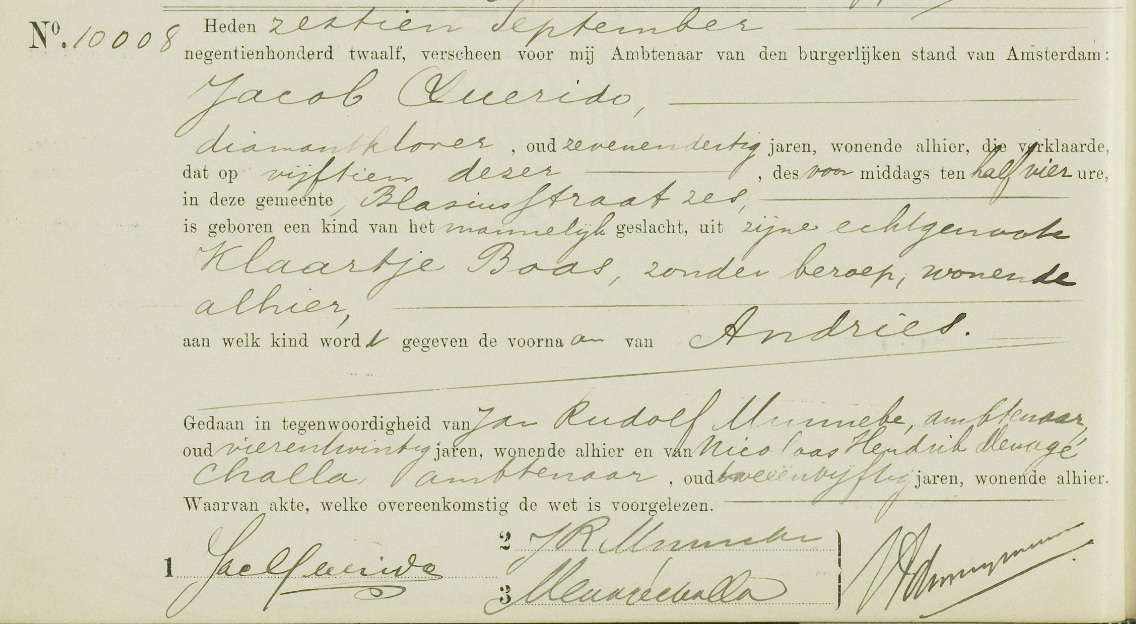 No. 10008 Heden zestien September
negentienhonderd twaalf, verscheen voor mij Ambtenaar van den burgerlijken stand van Amsterdam:
Jacob Querido,
diamantklover, oud zevenendertig jaren, wonende alhier, die verklaarde,
dat op vijftien dezer, des voor middags ten half vier ure,
in deze gemeente, Blasiusstraat zes,
is geboren een kind van het mannelijk geslacht, uit zijne echtgenoote
Klaartje Boas, zonder beroep, wonende
alhier,
aan welk kind wordt gegeven de voornaam van Andries.
Gedaan in tegenwoordigheid van Jan Rudolf Munnebe, ambtenaar,
oud vierentwintig jaren, wonende alhier en van Nicolaas Hendrik
challa, ambtenaar, oud tweeenvijftig jaren, wonende alhier.
Waarvan akte, welke overeenkomstig de wet is voorgelezen.
1 Jac Querido
2 JR Munnebe
3